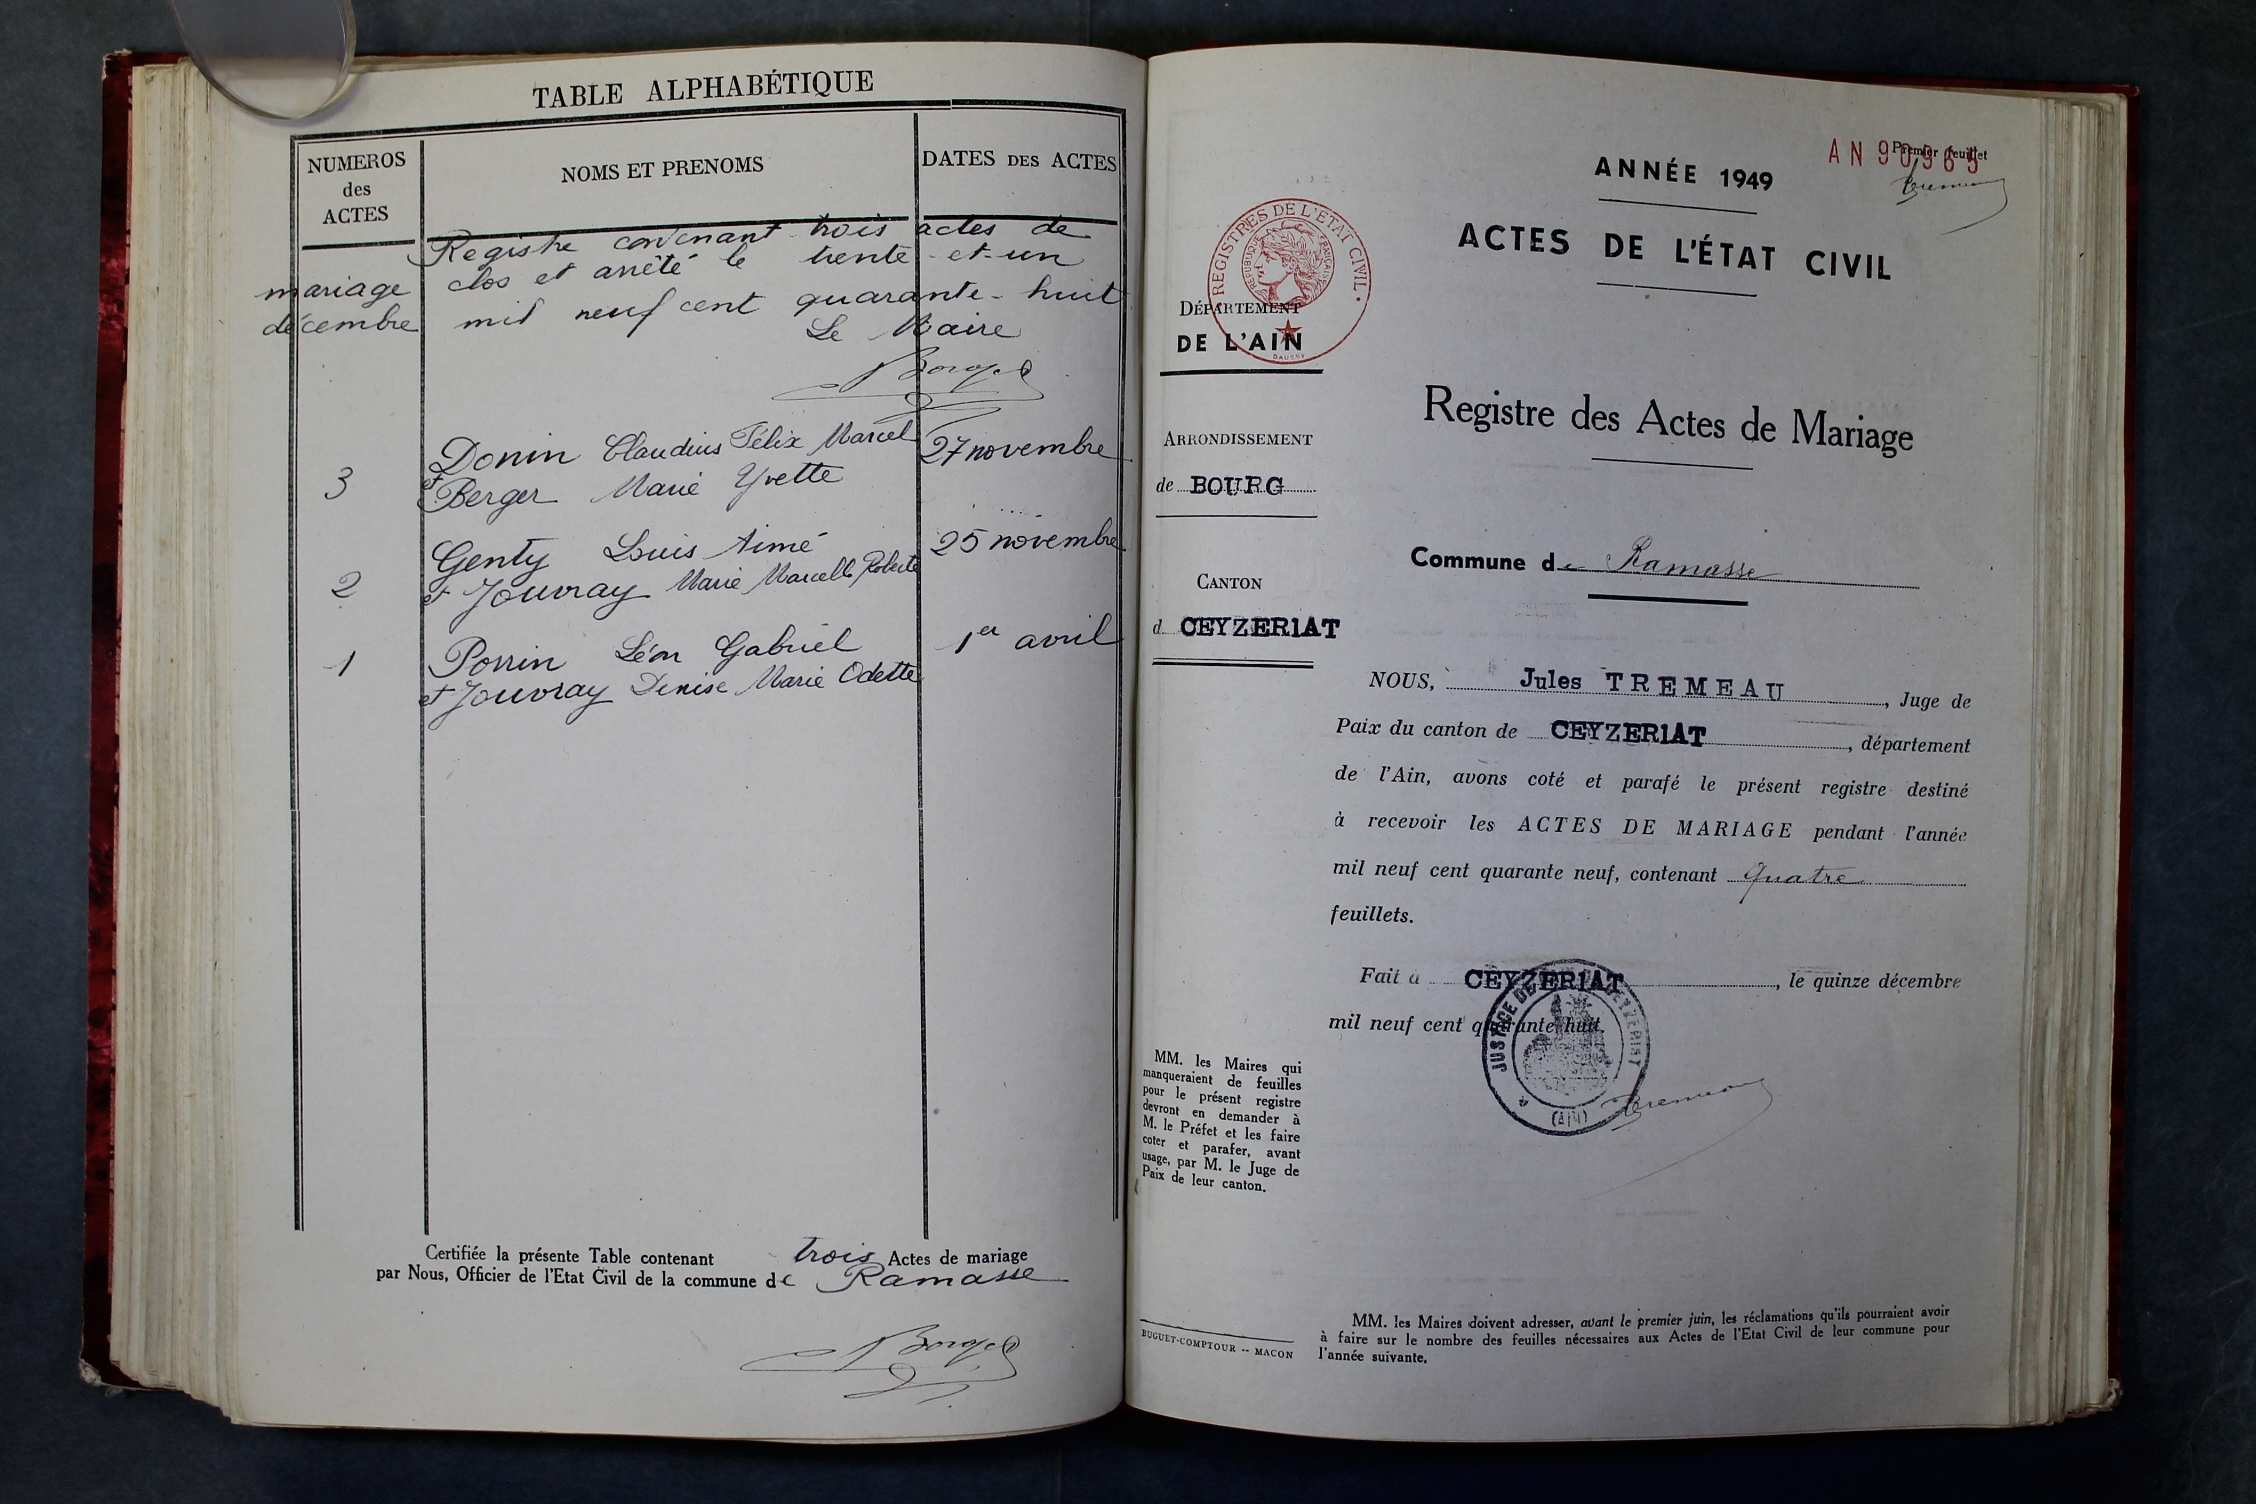 TABLE ALPHABÉTIQUE
NUMEROS
des
ACTES
NOMS ET PRENOMS
DATES DES ACTES
Registre contenant trois actes de
mariage clos et arrêté le trente-et-un
décembre mil neuf cent quarante-huit
Le Maire
3
Donin Claudius Félix Marcel
et Berger Marie Yvette
27 novembre
2
Genty Louis Aimé
et Jouvray Marie Marcelle Roberte
25 novembre
1
Perrin Léon Gabriel
et Jouvray Denise Marie Odette
1er avril
Certifiée la présente Table contenant trois Actes de mariage
par Nous, Officier de l'Etat Civil de la commune de Ramasse
AN 90965
Premier feuillet
ANNÉE 1949
ACTES DE L'ÉTAT CIVIL
REGISTRES DE L'ETAT CIVIL
REPUBLIQUE FRANÇAISE
DÉPARTEMENT
DE L'AIN
Registre des Actes de Mariage
ARRONDISSEMENT
de BOURG
Commune de Ramasse
CANTON
d CEYZERIAT
NOUS, Jules TREMEAU, Juge de
Paix du canton de CEYZERIAT, département
de l'Ain, avons coté et parafé le présent registre destiné
à recevoir les ACTES DE MARIAGE pendant l'année
mil neuf cent quarante neuf, contenant quatre
feuillets.
Fait à CEYZERIAT, le quinze décembre
mil neuf cent quarante huit.
JUSTICE DE CEYZERIAT
(AIN)
MM. les Maires qui
manqueraient de feuilles
pour le présent registre
devront en demander à
M. le Préfet et les faire
coter et parafer, avant
usage, par M. le Juge de
Paix de leur canton.
BUGUET-COMPTOUR -- MACON
MM. les Maires doivent adresser, avant le premier juin, les réclamations qu'ils pourraient avoir
à faire sur le nombre des feuilles nécessaires aux Actes de l'Etat Civil de leur commune pour
l'année suivante.